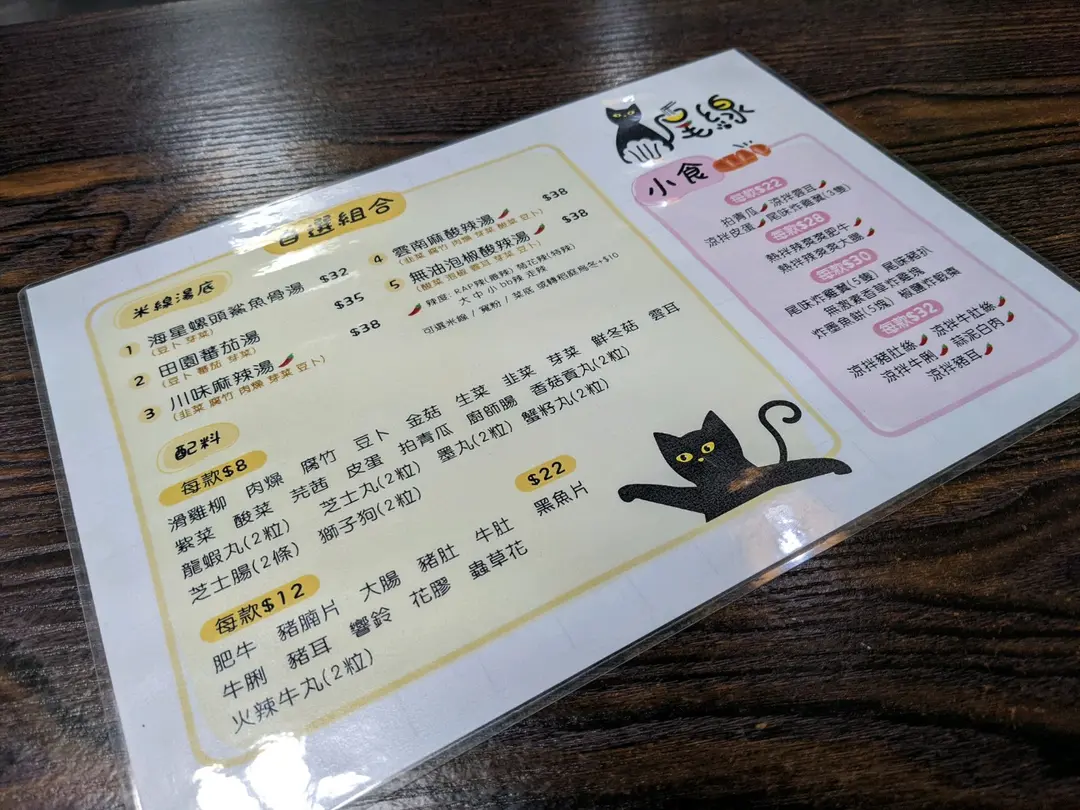 尾線
自選組合
米線湯底
1 海星螺頭鯊魚骨湯 $32
(豆卜 芽菜)
2 田園蕃茄湯 $35
(豆卜 蕃茄 芽菜)
3 川味麻辣湯 $38
(韭菜 腐竹 肉燥 芽菜 豆卜)
4 雲南麻酸辣湯 $38
(韭菜 腐竹 肉燥 芽菜 酸菜 豆卜)
5 無油泡椒酸辣湯 $38
(酸菜 泡椒 雲耳 芽菜 豆卜)
大 中 小 bb辣 走辣
可選米線 / 寬粉 / 菜底 或轉稻庭烏冬+$10
配料
每款$8
滑雞柳 肉燥 腐竹 豆卜 金菇 生菜 韭菜 芽菜 鮮冬菇 雲耳
紫菜 酸菜 芫茜 皮蛋 拍青瓜 廚師腸 香菇貢丸(2粒)
龍蝦丸(2粒) 芝士丸(2粒) 墨丸(2粒) 蟹籽丸(2粒)
芝士腸(2條) 獅子狗(2粒)
每款$12
肥牛 豬腩片 大腸 豬肚 牛肚
牛脷 豬耳 響鈴 花膠 蟲草花
火辣牛丸(2粒)
$22
黑魚片
小食
每款$22
拍青瓜 涼拌雲耳
涼拌皮蛋 尾味炸雞翼(3隻)
每款$28
熱拌辣爽爽肥牛
熱拌辣爽爽大腸
每款$30
尾味炸雞翼(5隻) 尾味豬扒
無激素香草炸雞塊
炸墨魚餅(5塊) 椒鹽炸蝦棗
每款$32
涼拌豬肚絲 涼拌牛肚絲
涼拌牛脷 蒜泥白肉
涼拌豬耳